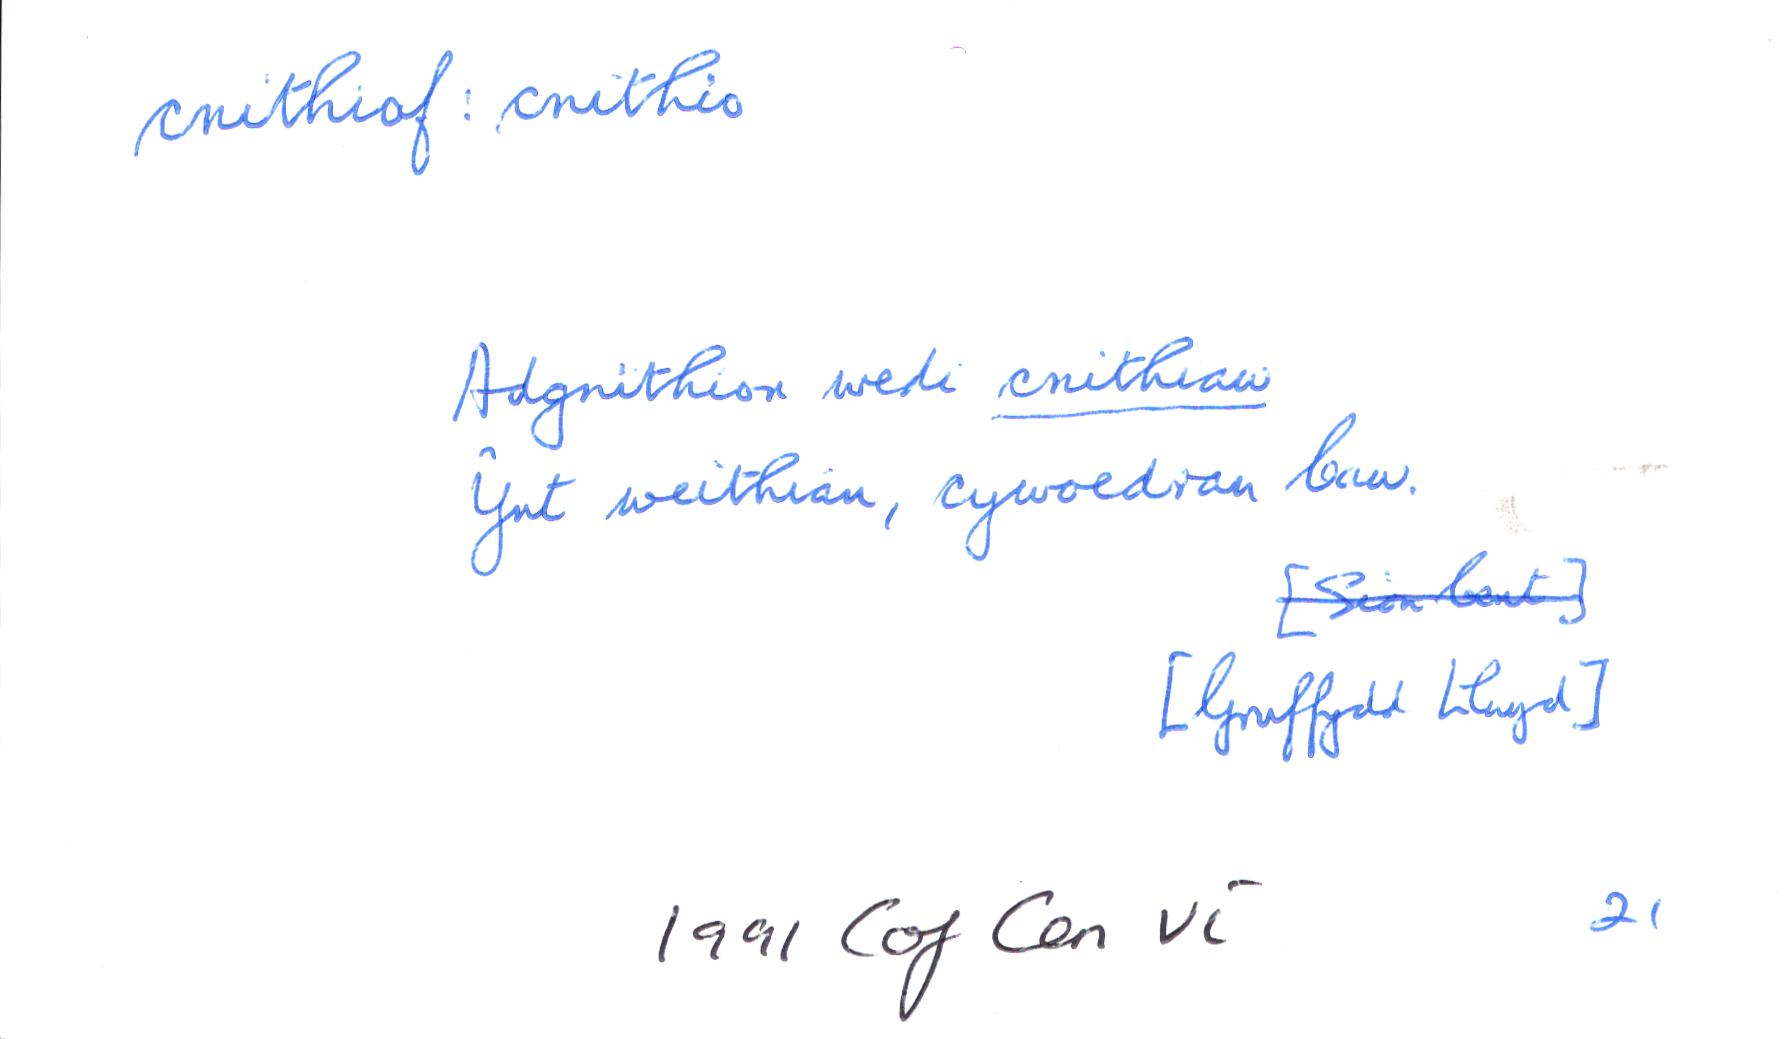 cnithiaf: cnithio
Adgnithion wedi cnithiaw
Ŷnt weithian, cywoedran baw.
[Siôn Cent]
[Gruffydd Llwyd]
1991 Cof Cen vi 21